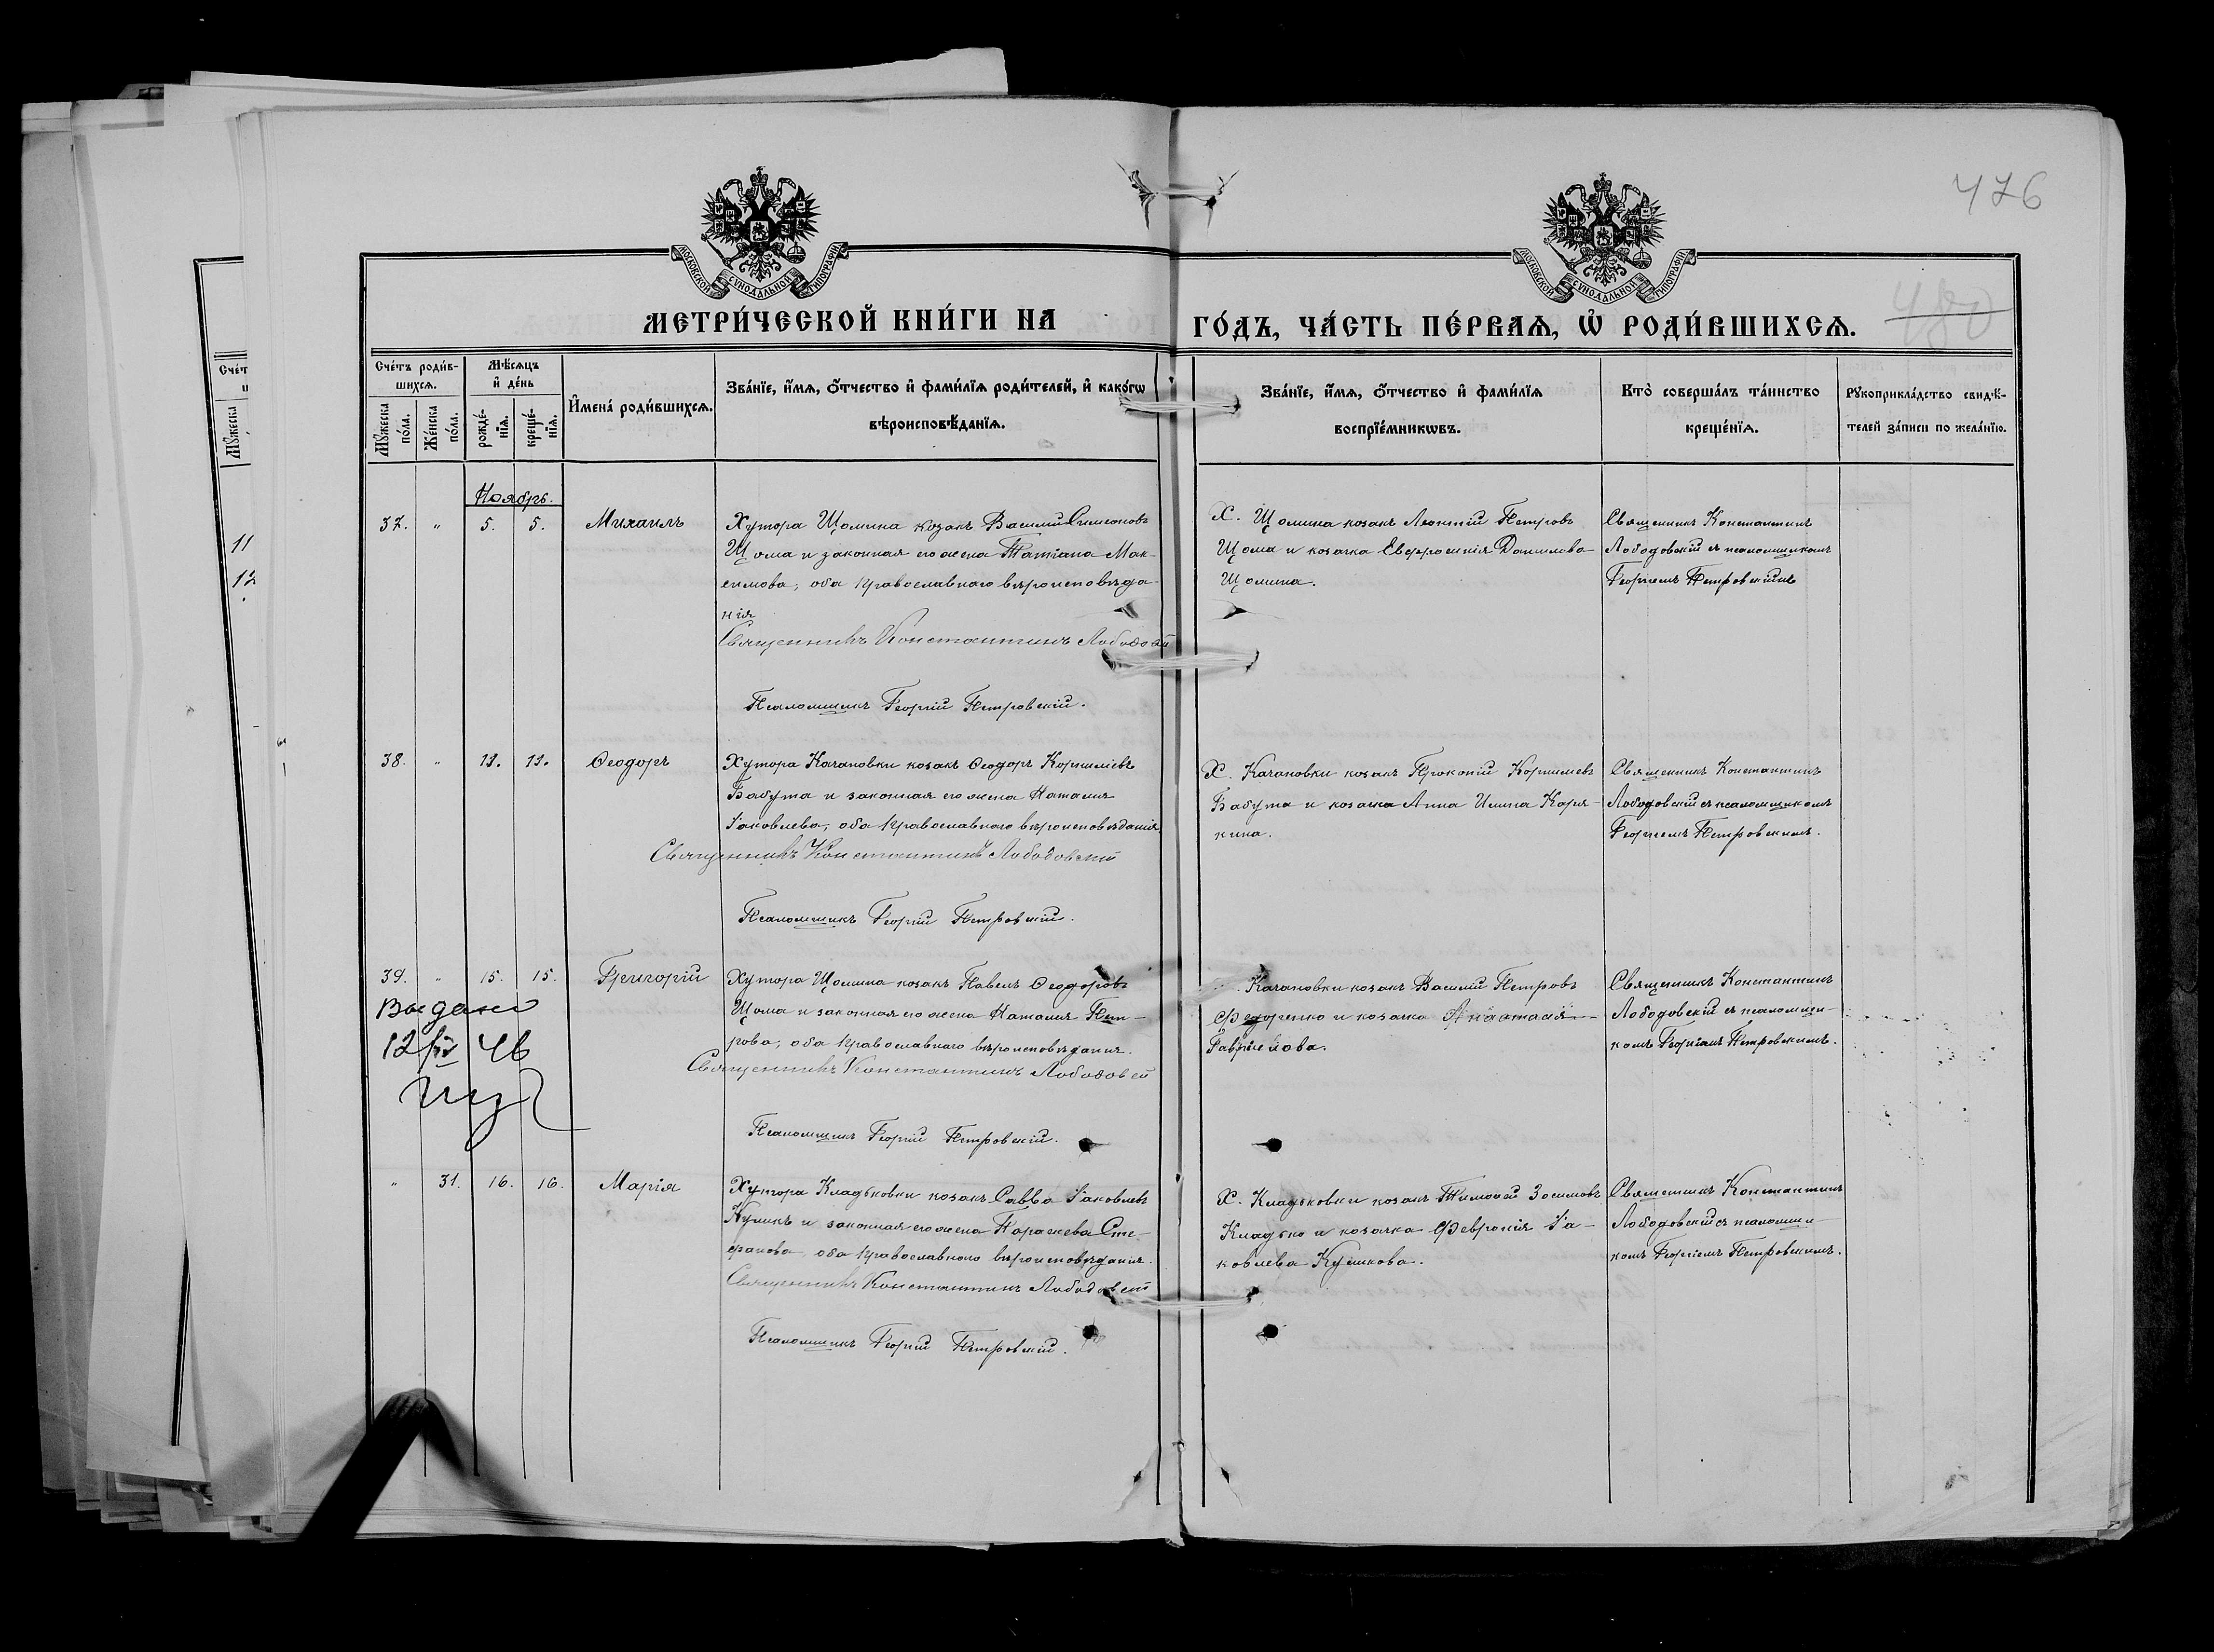 476
480
МОСКОВСКОЙ СѴНОДАЛЬНОЙ ТИПОГРАФІИ
МОСКОВСКОЙ СѴНОДАЛЬНОЙ ТИПОГРАФІИ
МЕТРИ́ЧЕСКОЙ КНИ́ГИ НА ГО́ДЪ, ЧА́СТЬ ПЕ́РВАѦ, Ѡ҆ РОДИ́ВШИХСѦ.
Сче́тъ роди́в-
шихсѧ.
Мꙋ́жеска по́ла.
Же́нска по́ла.
Мѣ́сѧцъ и҆ де́нь
рожде́-
нїѧ.
креще́-
нїѧ.
И҆мена̀ роди́вшихсѧ.
Зва́нїе, и҆́мѧ, ѻ҆́тчество и҆ фами́лїѧ роди́телей, и҆ како́гѡ
вѣроисповѣ́данїѧ.
Зва́нїе, и҆́мѧ, ѻ҆́тчество и҆ фами́лїѧ
воспрїе́мникѡвъ.
Кто̀ соверша́лъ та́инство
креще́нїѧ.
Рꙋкоприкла́дство свидѣ́-
телей за́писи по жела́нїю.
11
12
Ноябрь.
37. " 5. 5. Михаилъ
Хутора Щомина козакъ Василій Симеоновъ
Щома и законная его жена Татіана Мак-
симова, оба православнаго вѣроисповѣда-
нія
Священникъ Константинъ
Псаломщикъ Георгій Петровскій.
Х. Щомина козакъ Леонтій Петровъ
Щома и козачка Евфросинія Данилова
Щомина.
Священникъ Константинъ
Лободовскій съ псаломщикомъ
Георгіемъ Петровскимъ
38. " 11. 11. Ѳеодоръ
Хутора Качановки козакъ Ѳеодоръ Корниліевъ
Бабута и законная его жена Наталія
Іаковлева, оба православнаго вѣроисповѣданія.
Священникъ Константинъ Лободовскій
Псаломщикъ Георгій Петровскій.
Х. Качановки козакъ Прокопій Корниліевъ
Бабута и козачка Анна Ильина Каря-
кина.
Священникъ Константинъ
Лободовскій съ псаломщикомъ
Георгіемъ Петровскимъ.
39. " 15. 15. Григорій
Выдано
Хутора Щомина козакъ Павелъ Ѳеодоровъ
Щома и законная его жена Наталія Пет-
рова, оба православнаго вѣроисповѣданія.
Священникъ Константинъ
Псаломщикъ Георгій Петровскій.
Качановки козакъ Василій Петровъ
Федоренко и козачка Анастасія
Гавріилова.
Священникъ Константинъ
Лободовскій съ псаломщи-
комъ Георгіемъ Петровскимъ.
" 31. 16. 16. Марія
Хутора Кладьковки козакъ Савва Іаковлевъ
Куликъ и законная его жена Параскева Сте-
фанова оба православнаго вѣроисповѣданія.
Священникъ Константинъ
Псаломщикъ Георгій Петровскій.
Х. Кладьковки козакъ Тимоѳей Зосимовъ
Кладько и козачка Февронія Іа-
ковлева Куликова.
Священникъ Константинъ
Лободовскій съ псаломщи-
комъ Георгіемъ Петровскимъ.